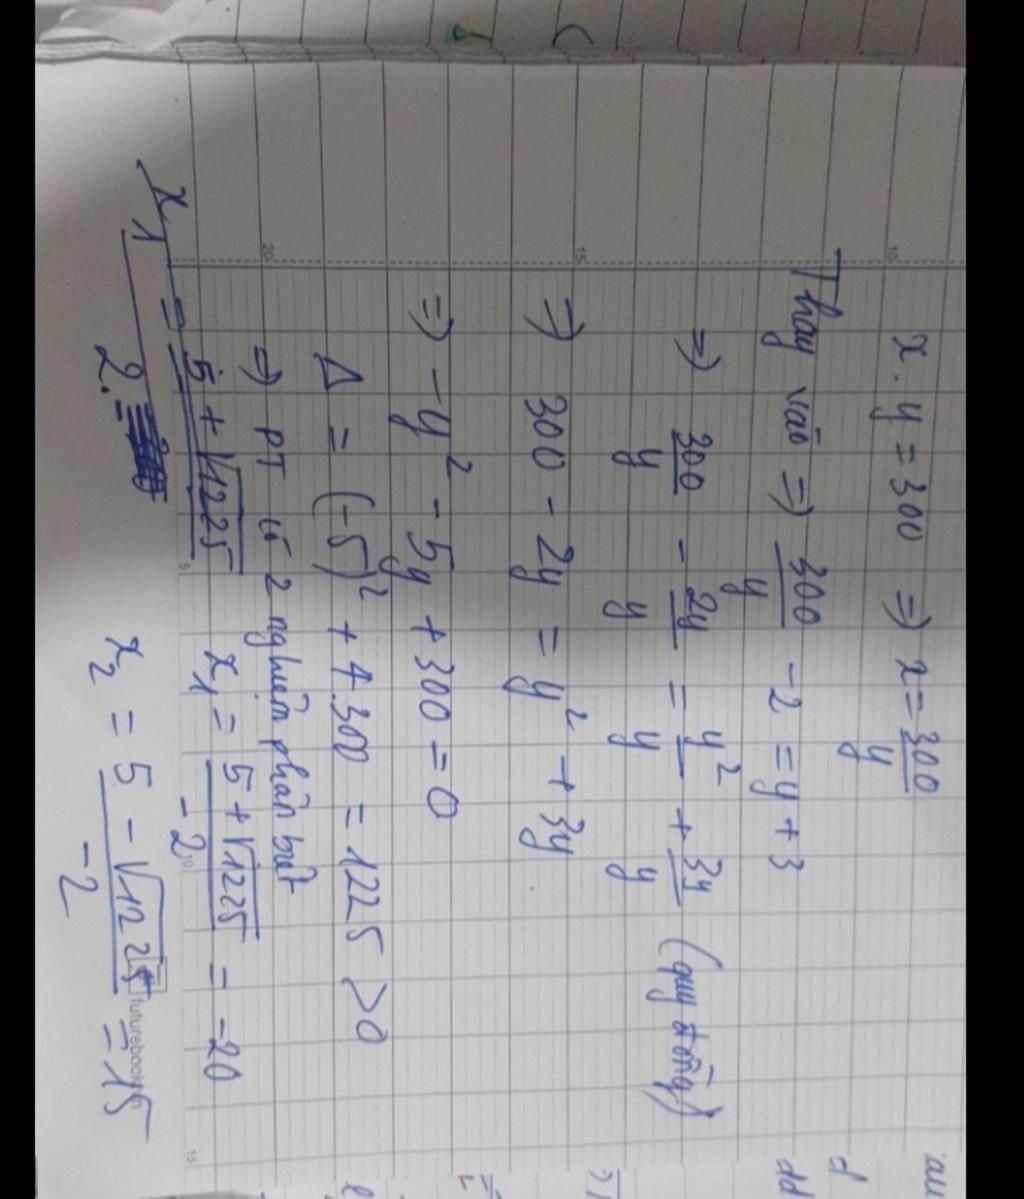 x.y = 300 => x = 300/y
Thay vào => 300/y - 2 = y + 3
=> 300/y - 2y/y = y²/y + 3y/y (quy đồng)
=> 300 - 2y = y² + 3y
=> -y² - 5y + 300 = 0
Δ = (-5)² + 4.300 = 1225 > 0
=> PT có 2 nghiệm phân biệt
x₁ = (5 + √1225)/(-2) = -20
x₁ = (5 + √1225)/2.
x₂ = (5 - √1225)/(-2) = 15
futurebook
10
15
20
5
10
15